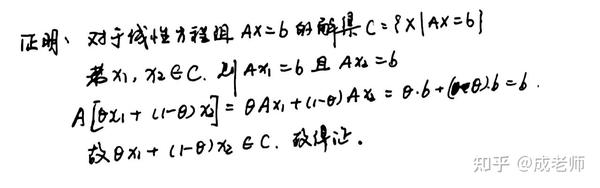 证明、对于线性方程组 AX=b 的解集 C={X|AX=b}
若 x₁, x₂ ∈ C. 则 Ax₁ = b 且 Ax₂ = b
A[θx₁ + (1-θ) x₂] = θAx₁ + (1-θ) Ax₂ = θ·b + (1-θ)·b = b .
故 θx₁ + (1-θ) x₂ ∈ C. 故得证.
知乎 @成老师